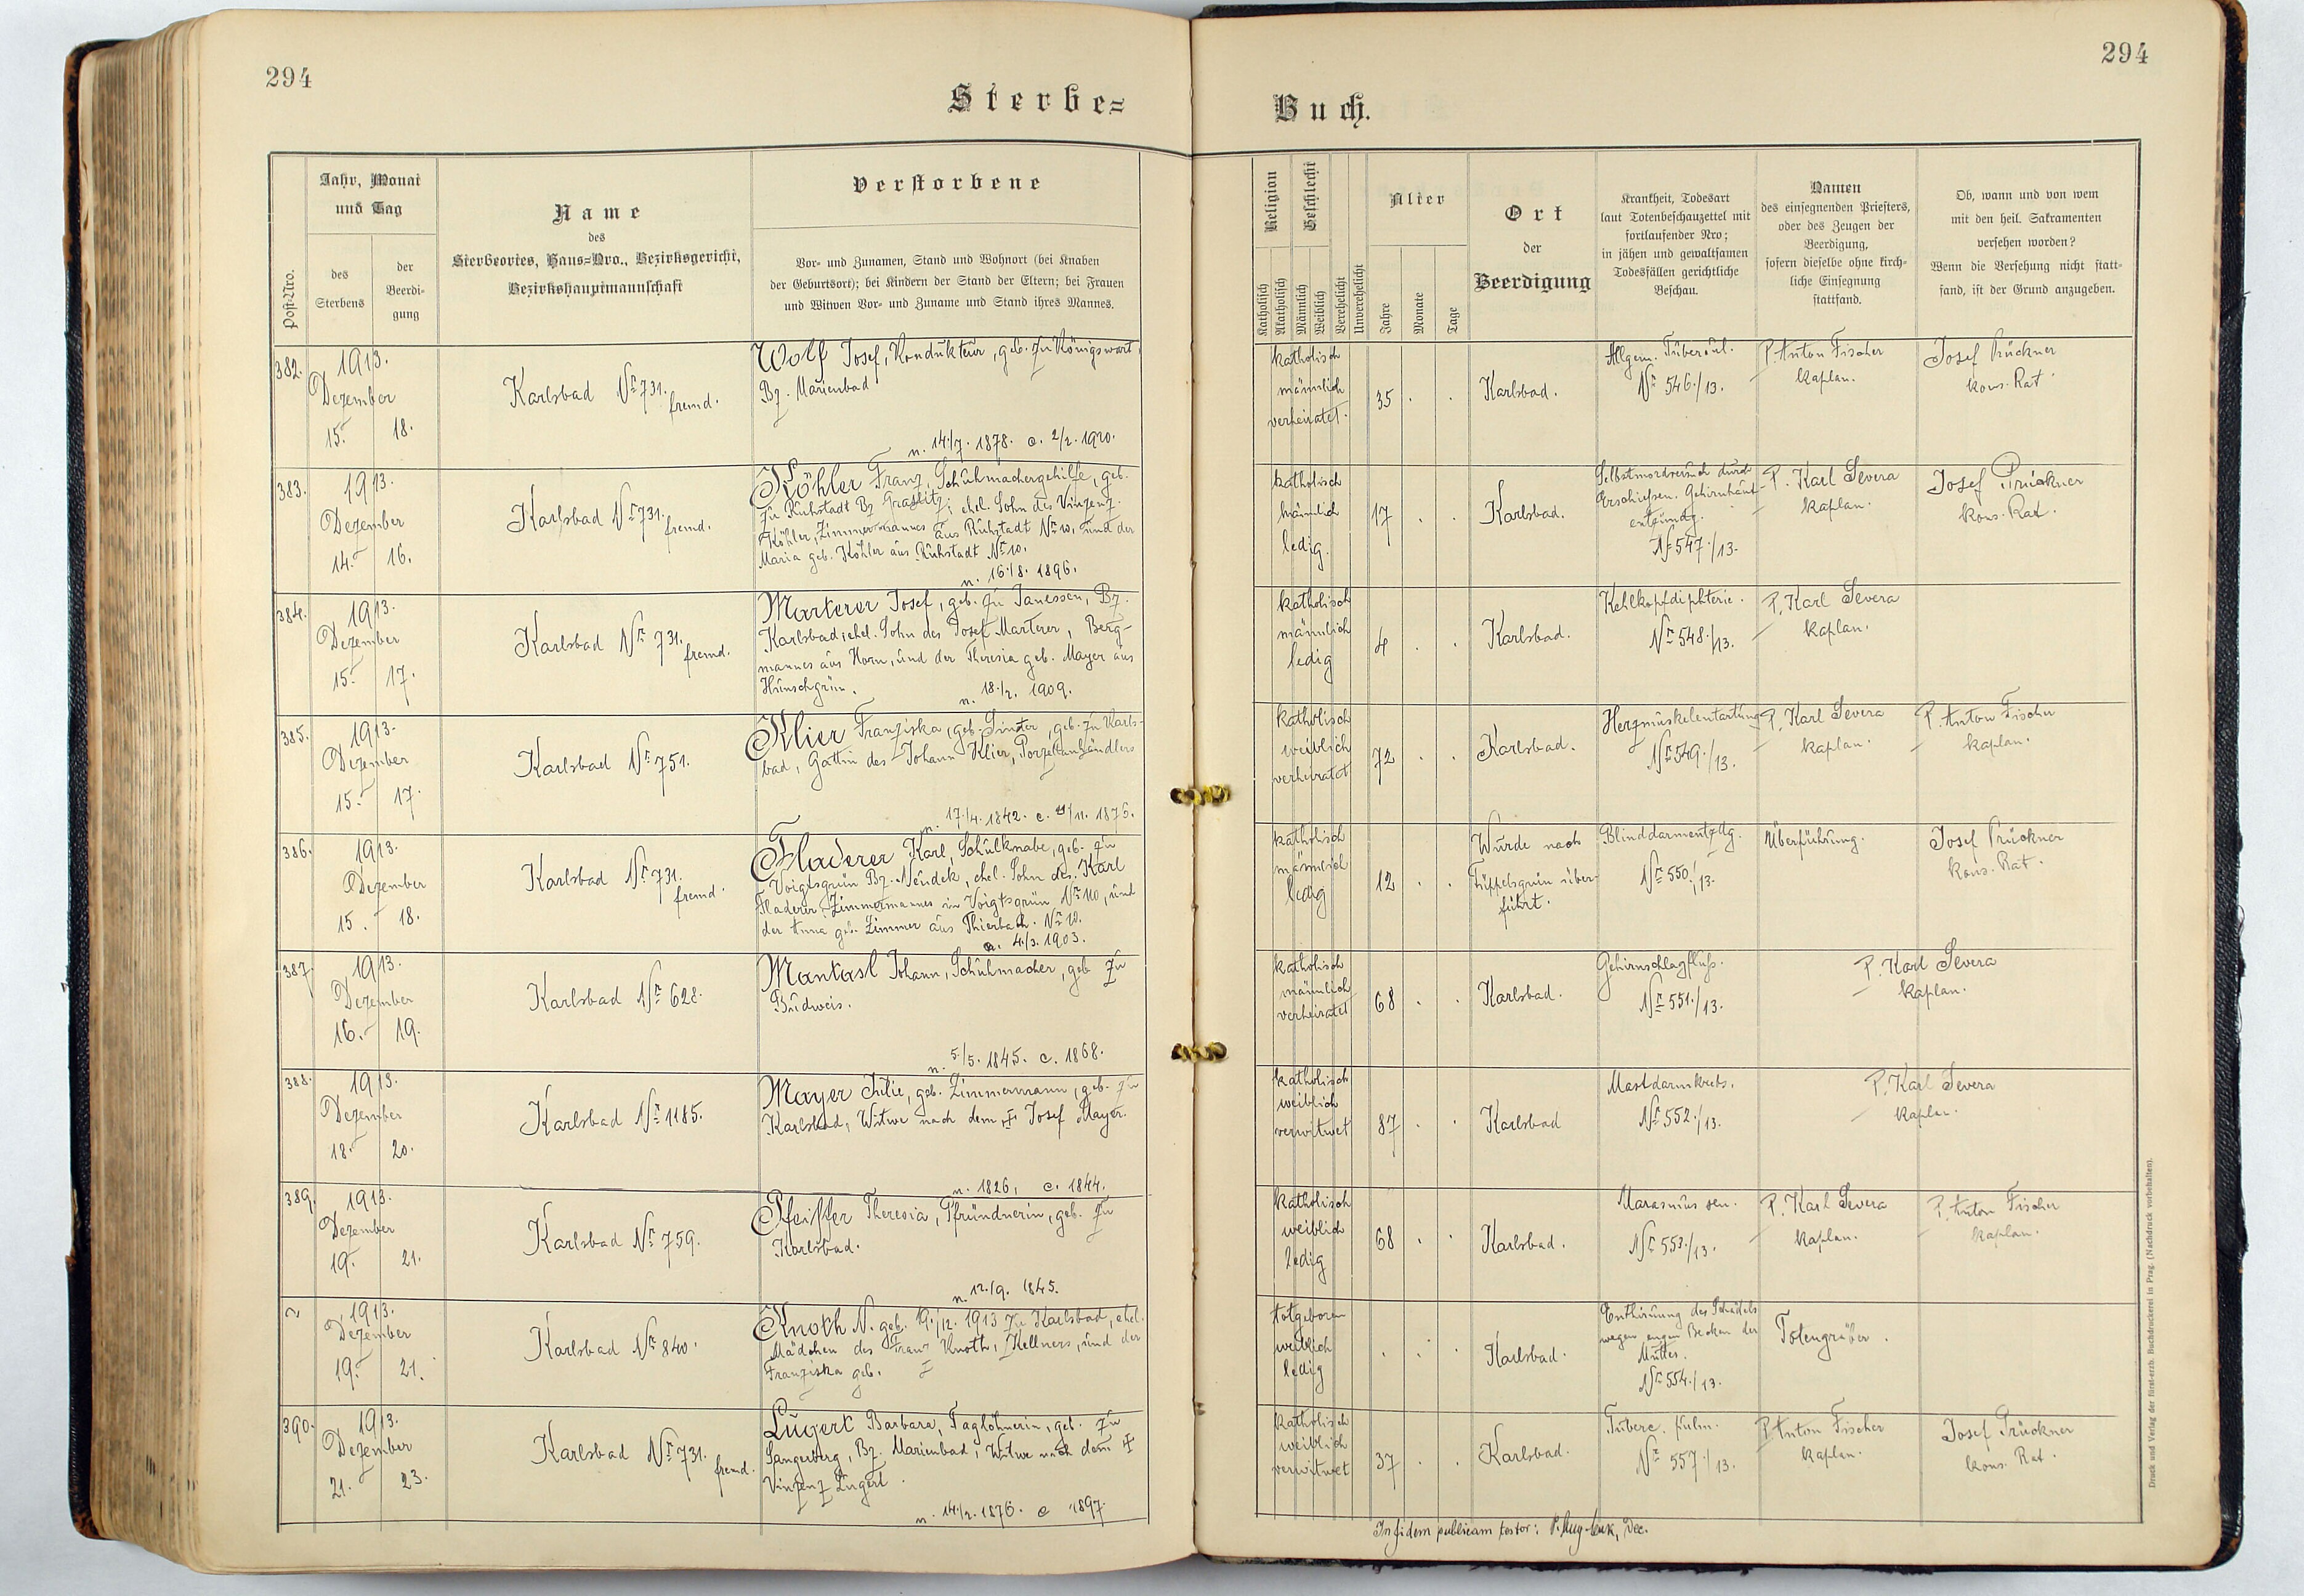 294
294
Sterbe=
Buch.
Post-Nro.
Jahr, Monat
und Tag
des
Sterbens
der
Beerdi-
gung
Name
des
Sterbeortes, Haus=Nro., Bezirksgericht,
Bezirkshauptmannschaft
Verstorbene
Vor- und Zunamen, Stand und Wohnort (bei Knaben
der Geburtsort); bei Kindern der Stand der Eltern; bei Frauen
und Witwen Vor- und Zuname und Stand ihres Mannes.
Religion
Katholisch
Akatholisch
Geschlecht
Männlich
Weiblich
Verehelicht
Unverehelicht
Alter
Jahre
Monate
Tage
Ort
der
Beerdigung
Krankheit, Todesart
laut Totenbeschauzettel mit
fortlaufender Nro;
in jähen und gewaltsamen
Todesfällen gerichtliche
Beschau.
Namen
des einsegnenden Priesters,
oder des Zeugen der
Beerdigung,
sofern dieselbe ohne kirch-
liche Einsegnung
stattfand.
Ob, wann und von wem
mit den heil. Sakramenten
versehen worden?
Wenn die Versehung nicht statt-
fand, ist der Grund anzugeben.
382.
1913.
Dezember
15. 18.
Karlsbad Nr 731.
fremd.
Wolf Josef, Kondukteur, geb. zu Königswart,
Bz. Marienbad
n. 14./7. 1878. c. 2/2. 1920.
katholisch
männlich
verheiratet.
35 . .
Karlsbad.
Allgem. Tuberkul.
Nr 546./13.
P. Anton Fischer
Kaplan.
Josef Prückner
kons. Rat
383.
1913.
Dezember
14. 16.
Karlsbad Nr 731.
fremd.
Köhler Franz, Schuhmachergehilfe, geb.
zu Ruhstadt Bz Graslitz; ehel. Sohn des Vinzenz
Köhler, Zimmermannes aus Ruhstadt Nr 10, und der
Maria geb. Köhler aus Ruhstadt Nr 10.
n. 16./8. 1896.
katholisch
männlich
ledig.
17 . .
Karlsbad.
Selbstmordversuch durch
Erschießen. Gehirnhaut-
entzündg.
Nr 547./13.
P. Karl Severa
Kaplan.
Josef Prückner
kons. Rat.
384.
1913.
Dezember
15. 17.
Karlsbad Nr 731.
fremd.
Marterer Josef, geb. zu Janessen, Bz.
Karlsbad; ehel. Sohn des Josef Marterer, Berg-
mannes aus Horn, und der Theresia geb. Mayer aus
Hunschgrün.
n. 18./2. 1909.
katholisch
männlich
ledig
4 . .
Karlsbad.
Kehlkopfdiphterie.
Nr 548./13.
P. Karl Severa
Kaplan.
385.
1913.
Dezember
15. 17.
Karlsbad Nr 751.
Klier Franziska, geb. Sinter, geb. zu Karls-
bad, Gattin des Johann Klier, Porzellanhändlers
n. 17./4. 1842. c. /11. 1876.
katholisch
weiblich
verheiratet
72 . .
Karlsbad.
Herzmuskelentartung
Nr 549./13.
P. Karl Severa
Kaplan.
P. Anton Fischer
Kaplan.
386.
1913.
Dezember
15. 18.
Karlsbad Nr 731.
fremd.
Fladerer Karl, Schulknabe, geb. zu
Voigtsgrün Bz. Neudek, ehel. Sohn des Karl
Fladerer, Zimmermannes in Voigtsgrün Nr 110, und
der Anna geb. Zimmer aus Thierbach. Nr 10.
n. 4./3. 1903.
katholisch
männlich
ledig
12 . .
Wurde nach
Tüppelsgrün über-
führt.
Blinddarmentzdg.
Nr 550./13.
Überführung.
Josef Prückner
kons. Rat.
387
1913.
Dezember
16. 19.
Karlsbad Nr 628.
Mantasl Johann, Schuhmacher, geb zu
Budweis.
n. 5./5. 1845. c. 1868.
katholisch
männlich
verheiratet
68 . .
Karlsbad.
Gehirnschlagfluß.
Nr 551./13.
P. Karl Severa
Kaplan.
388.
1913.
Dezember
18. 20.
Karlsbad Nr 1185.
Mayer Julie, geb. Zimmermann, geb. zu
Karlsbad, Witwe nach dem + Josef Mayer.
n. 1826, c. 1844.
katholisch
weiblich
verwitwet
87 . .
Karlsbad
Mastdarmkrebs.
Nr 552./13.
P. Karl Severa
Kaplan.
389.
1913.
Dezember
19. 21.
Karlsbad Nr 759.
Pfeiffer Theresia, Pfründnerin, geb. zu
Karlsbad.
n. 12./9. 1845.
katholisch
weiblich
ledig
68 . .
Karlsbad.
Marasmus sen.
Nr 553./13.
P. Karl Severa
Kaplan.
P. Anton Fischer
Kaplan.
1913.
Dezember
19. 21.
Karlsbad Nr 840.
Knoth N. geb. 19./12. 1913 zu Karlsbad, ehel.
Mädchen des Franz Knoth, Kellners, und der
Franziska geb.
totgeboren
weiblich
ledig
. . .
Karlsbad.
Enthirnung des Schädels
wegen engen Becken der
Mutter.
Nr 554./13.
Totengräber.
390.
1913.
Dezember
21. 23.
Karlsbad Nr 731.
fremd.
Lugert Barbara, Taglöhnerin, geb. zu
Sangerberg, Bz. Marienbad, Witwe nach dem +
Vinzenz Lugert.
n. 14./2. 1876. c 1897.
katholisch
weiblich
verwitwet
37 . .
Karlsbad.
Tuberc. pulm.
Nr 557./13.
P. Anton Fischer
Kaplan.
Josef Prückner
kons. Rat.
In fidem publicam testor: P. Aug. , Dec.
Druck und Verlag der fürst-erzb. Buchdruckerei in Prag. (Nachdruck vorbehalten).